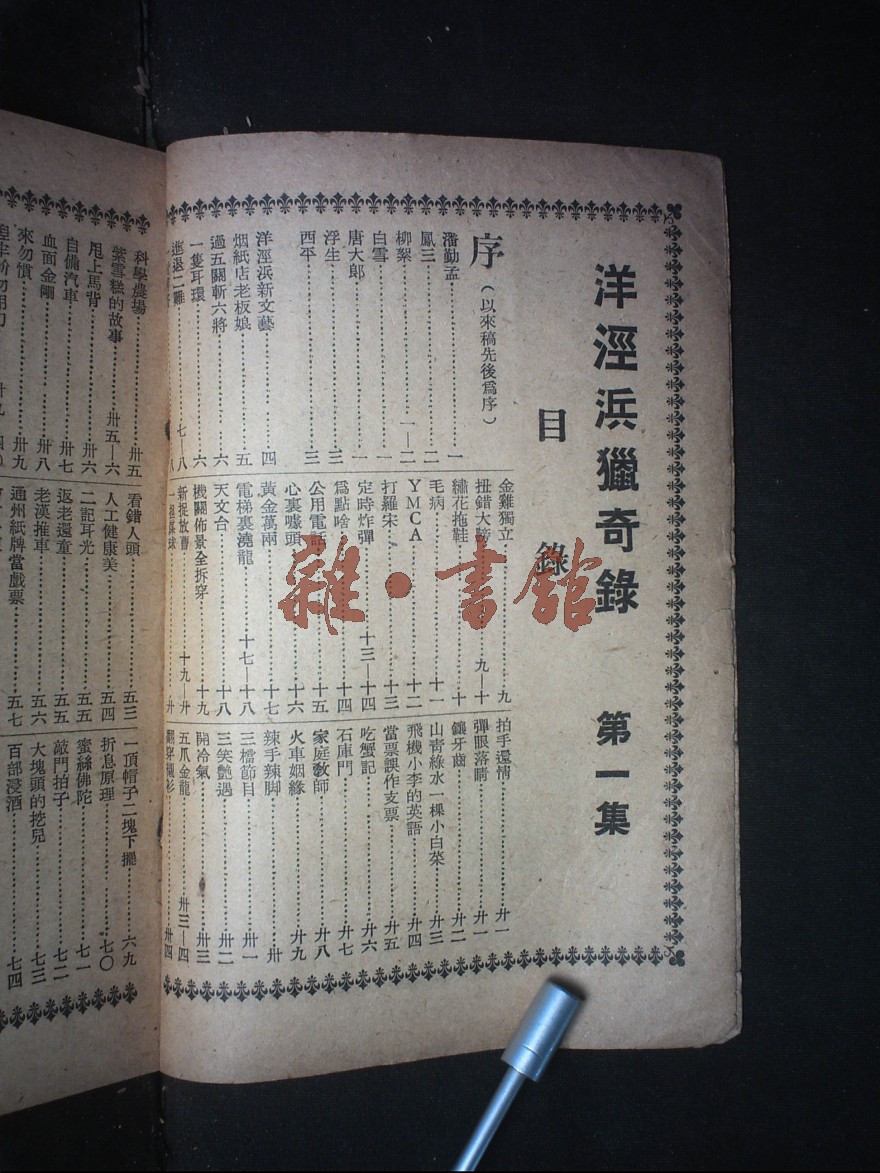 洋涇浜獵奇錄　第一集
目　錄
序（以來稿先後爲序）
潘勤孟……一
鳳三……二
柳絮……一—二
白雪……一
唐大郎……一
浮生……三
西平……三
洋涇浜新文藝……四
烟紙店老板娘……五
過五關斬六將……六
一隻耳環……六
進退二難……七—八
金雞獨立……九
扭錯大膀……九—十
繡花拖鞋……十
毛病……十一
YMCA……十二
打羅宋……十三
定時炸彈……十三—十四
爲點啥……十四
公用電話……十五
心裏噱頭……十六
黃金萬兩……十七
電梯裏澆龍……十七—十八
天文台……十八
機關佈景全拆穿……十九
新捉放曹……十九—廿
拍手還情……廿一
彈眼落睛……廿一
鑲牙齒……廿二
山靑綠水一棵小白菜……廿三
飛機小李的英語……廿四
當票誤作支票……廿五
吃蟹記……廿六
石庫門……廿七
家庭敎師……廿八
火車姻緣……廿九
辣手辣脚……卅
三檔節目……卅一
三笑艷遇……卅二
開冷氣……卅三
五爪金龍……卅三—四
科學農場……卅五
紫雪糕的故事……卅五—六
甩上馬背……卅六
自備汽車……卅七
血面金剛……卅八
來勿慣……卅九
看錯人頭……五三
人工健康美……五四
二記耳光……五五
返老還童……五五
老漢推車……五六
通州紙牌當戲票……五七
一頂帽子二塊下擺……六九
折息原理……七〇
蜜絲佛陀……七一
敲門拍子……七二
大塊頭的挖兒……七三
百部浸酒……七四
雜·書館